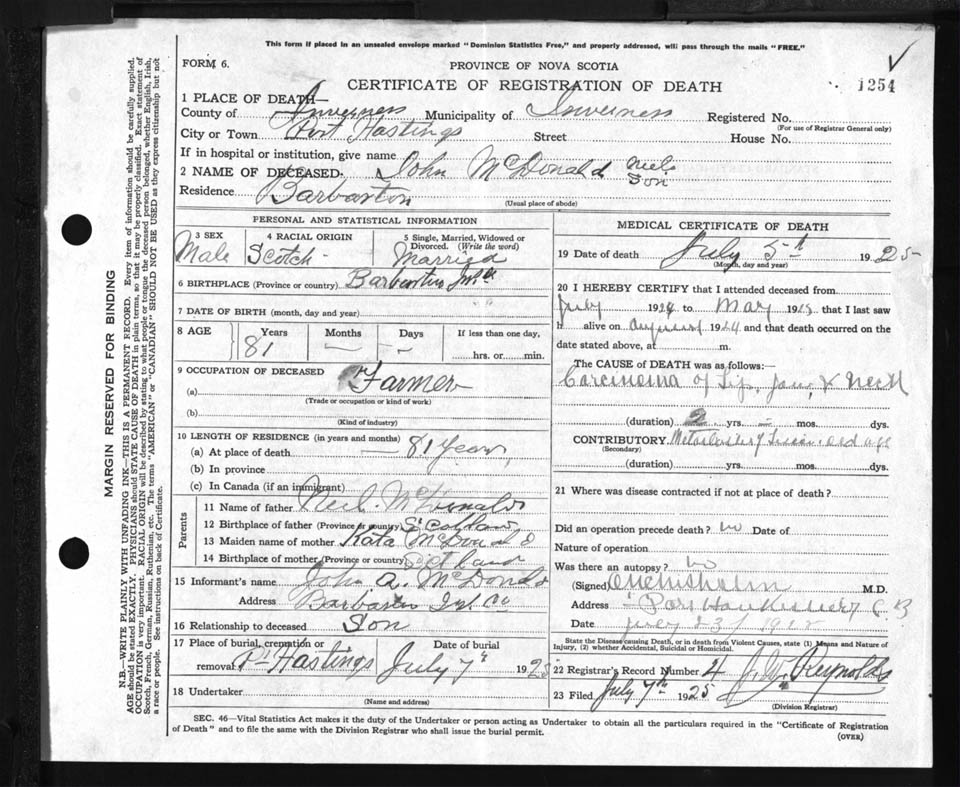 This form if placed in an unsealed envelope marked "Dominion Statistics Free," and properly addressed, will pass through the mails "FREE."
FORM 6.
PROVINCE OF NOVA SCOTIA
CERTIFICATE OF REGISTRATION OF DEATH
1254
1 PLACE OF DEATH—
County of Inverness Municipality of Inverness Registered No.
(For use of Registrar General only)
City or Town Port Hastings Street House No.
If in hospital or institution, give name
2 NAME OF DECEASED. John McDonald Neil Son
Residence
(Usual place of abode)
PERSONAL AND STATISTICAL INFORMATION
3 SEX
Male
4 RACIAL ORIGIN
Scotch
5 Single, Married, Widowed or Divorced. (Write the word)
Married
6 BIRTHPLACE (Province or country)
7 DATE OF BIRTH (month, day and year) " "
8 AGE
Years Months Days If less than one day,
81 — — hrs. or min.
9 OCCUPATION OF DECEASED
(a) Farmer
(Trade or occupation or kind of work)
(b)
(Kind of industry)
10 LENGTH OF RESIDENCE (in years and months)
(a) At place of death — 81 Years
(b) In province
(c) In Canada (if an immigrant)
Parents
11 Name of father Neil McDonald
12 Birthplace of father (Province or country) Scotland
13 Maiden name of mother Kate McDonald
14 Birthplace of mother (Province or country) Scotland
15 Informant's name John A. McDonald
Address
16 Relationship to deceased Son
17 Place of burial, cremation or removal Pt Hastings Date of burial July 7th 1925
18 Undertaker
(Name and address)
MEDICAL CERTIFICATE OF DEATH
19 Date of death July 5th 1925
(Month, day and year)
20 I HEREBY CERTIFY that I attended deceased from
July 19 to May 19 that I last saw
h alive on August 1924 and that death occurred on
date stated above, at m.
The CAUSE of DEATH was as follows:
Carcinoma of Lip, Jaw, & Neck
(duration) 2 yrs. — mos. dys.
CONTRIBUTORY. old age
(Secondary)
(duration) yrs. mos. dys.
21 Where was disease contracted if not at place of death?
Did an operation precede death? no Date of
Nature of operation
Was there an autopsy? no
(Signed) M.D.
Address
Date
State the Disease causing Death, or in death from Violent Causes, state (1) Means and Nature of Injury, (2) whether Accidental, Suicidal or Homicidal.
22 Registrar's Record Number 4 J. W. Reynolds
23 Filed July 7th 1925
(Division Registrar)
SEC. 46—Vital Statistics Act makes it the duty of the Undertaker or person acting as Undertaker to obtain all the particulars required in the "Certificate of Registration
of Death" and to file the same with the Division Registrar who shall issue the burial permit.
(OVER)
MARGIN RESERVED FOR BINDING
N.B.—WRITE PLAINLY WITH UNFADING INK—THIS IS A PERMANENT RECORD. Every item of information should be carefully supplied.
AGE should be stated EXACTLY. PHYSICIANS should STATE CAUSE OF DEATH in plain terms, so that it may be properly classified. Exact statement of
OCCUPATION is very important. RACIAL ORIGIN will be described by stating to what people or tongue the deceased person belonged, whether English, Irish,
Scotch, French, German, Russian, Ruthenian, etc. The terms "AMERICAN" or "CANADIAN" SHOULD NOT BE USED as they express citizenship but not
a race or people. See instructions on back of Certificate.